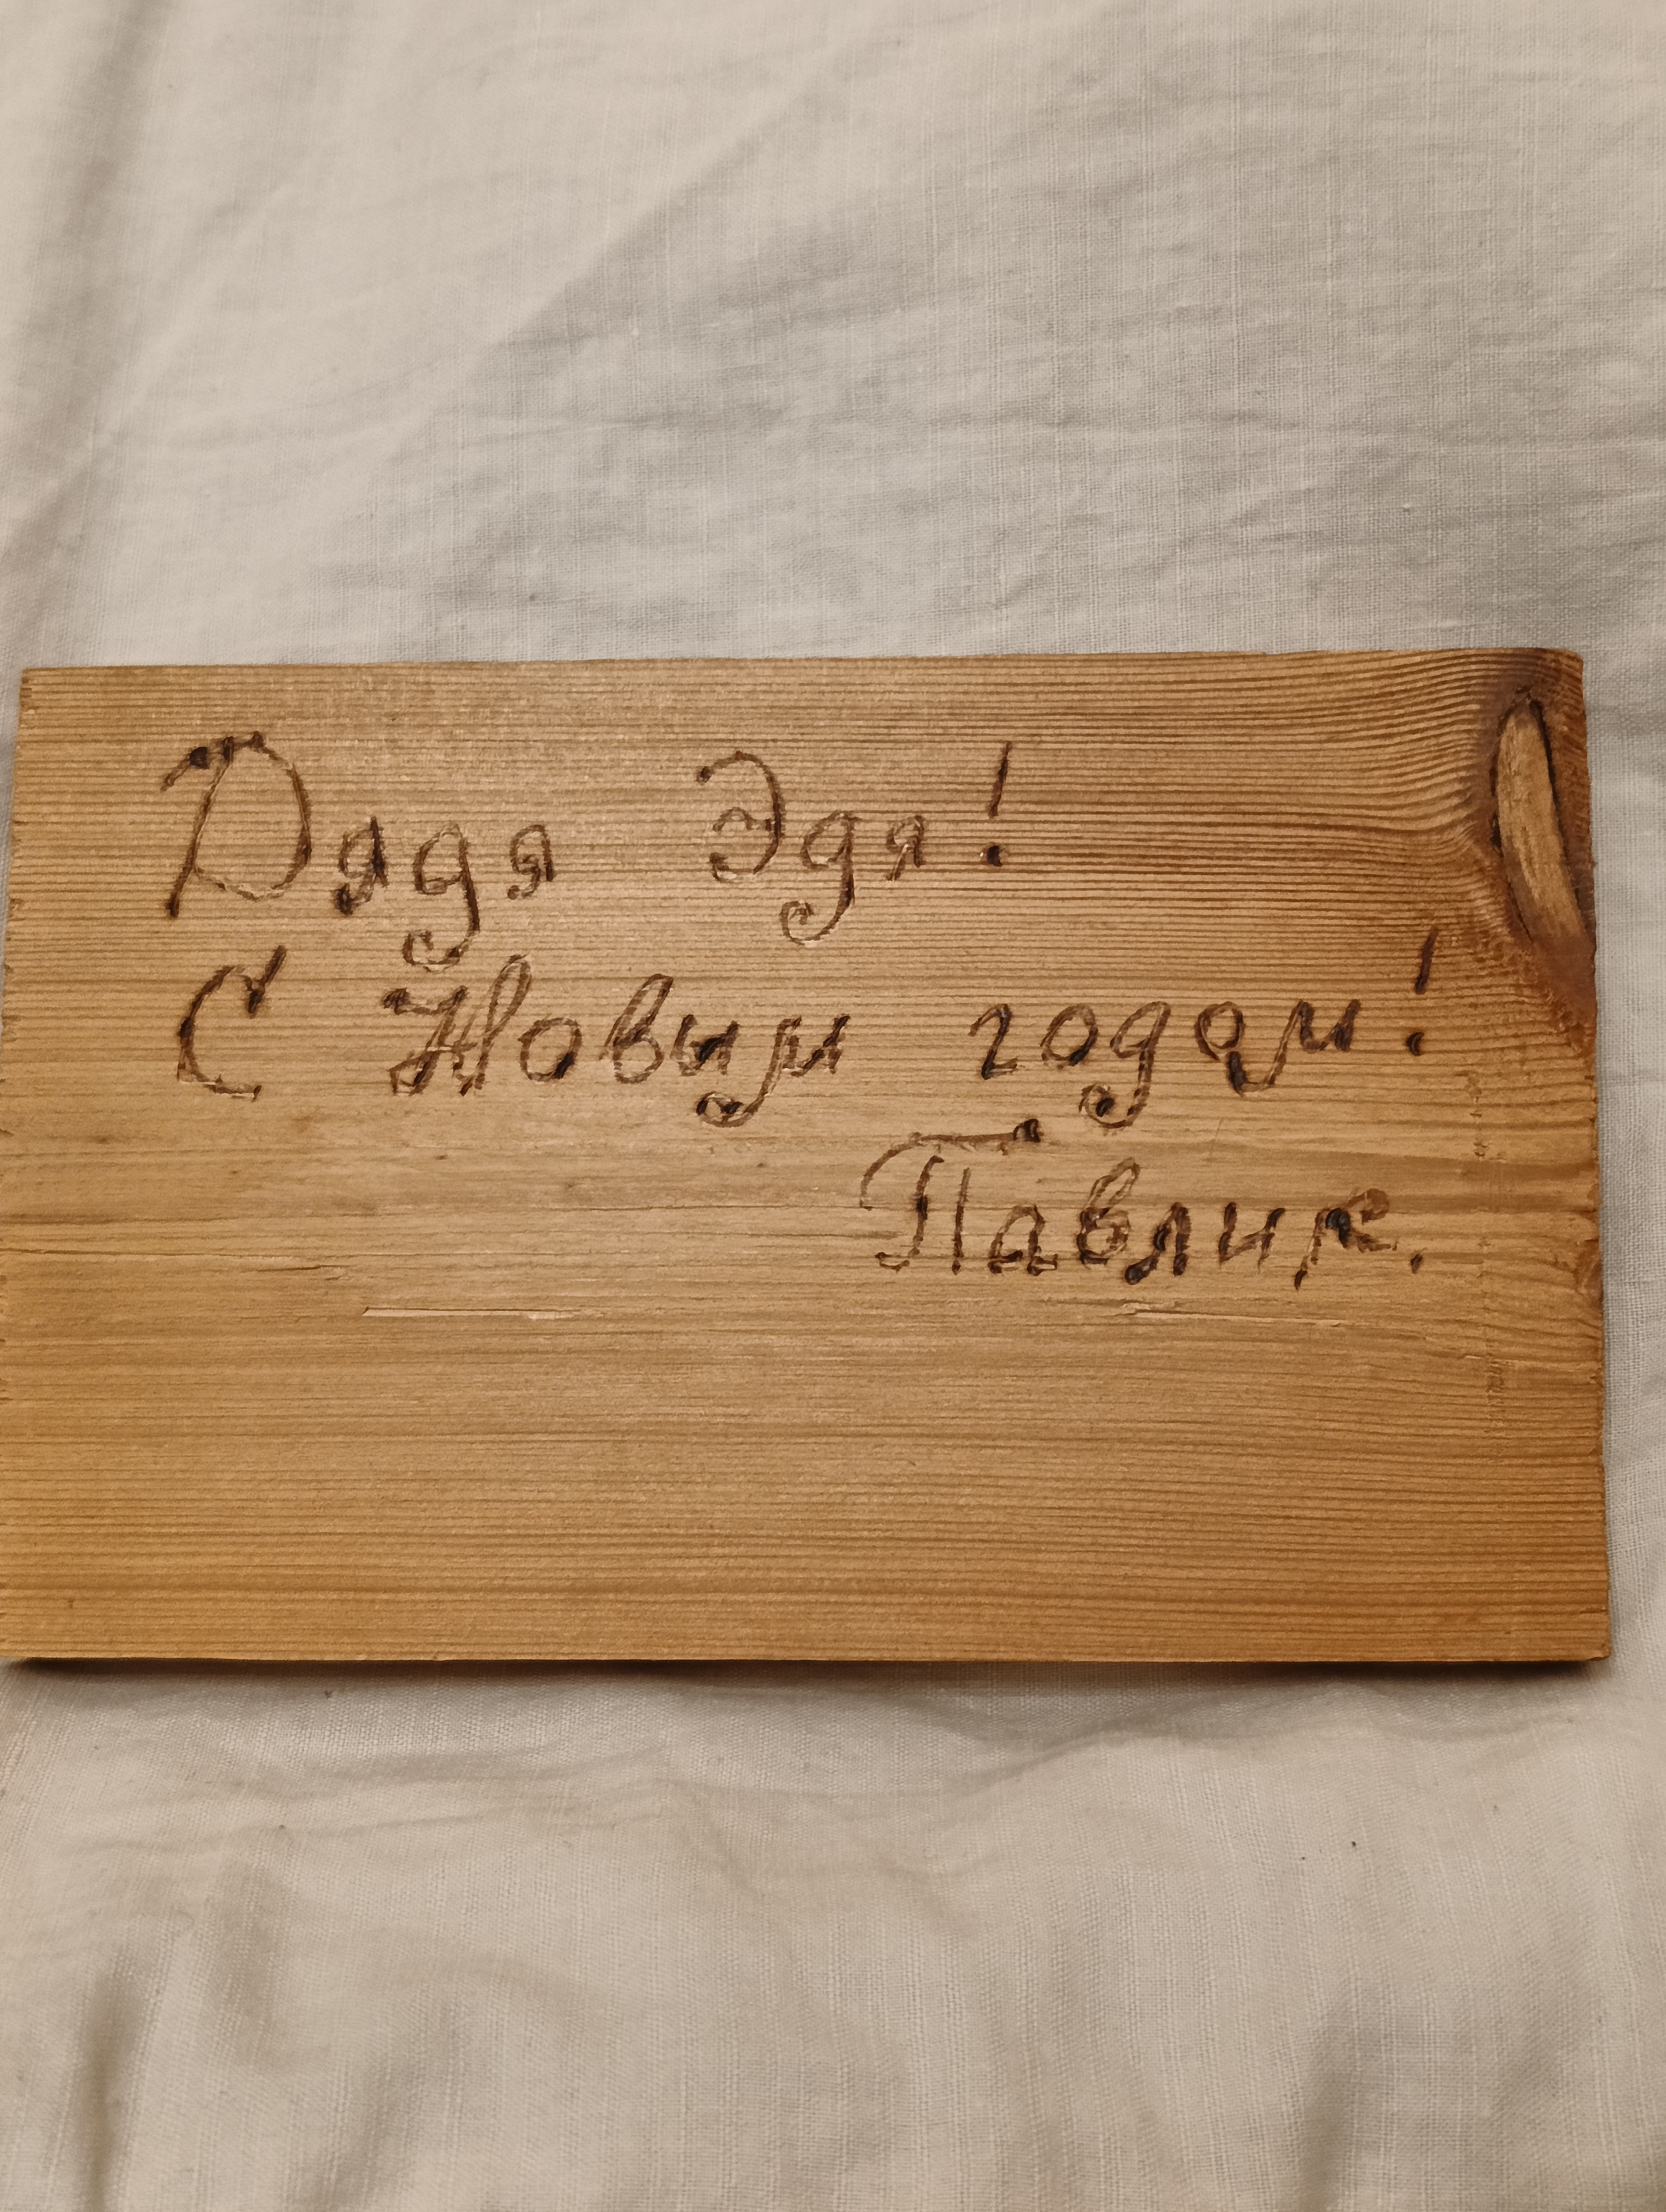 Дядя Эдя!
С Новым годом!
Павлик.